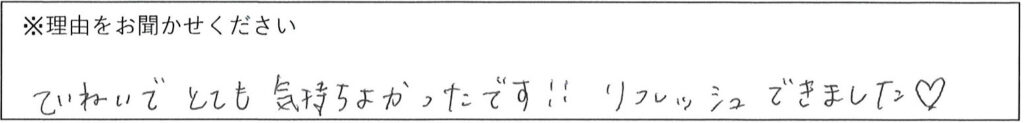 ※理由をお聞かせください
ていねいで とても 気持ちよかったです!! リフレッシュ できました♡